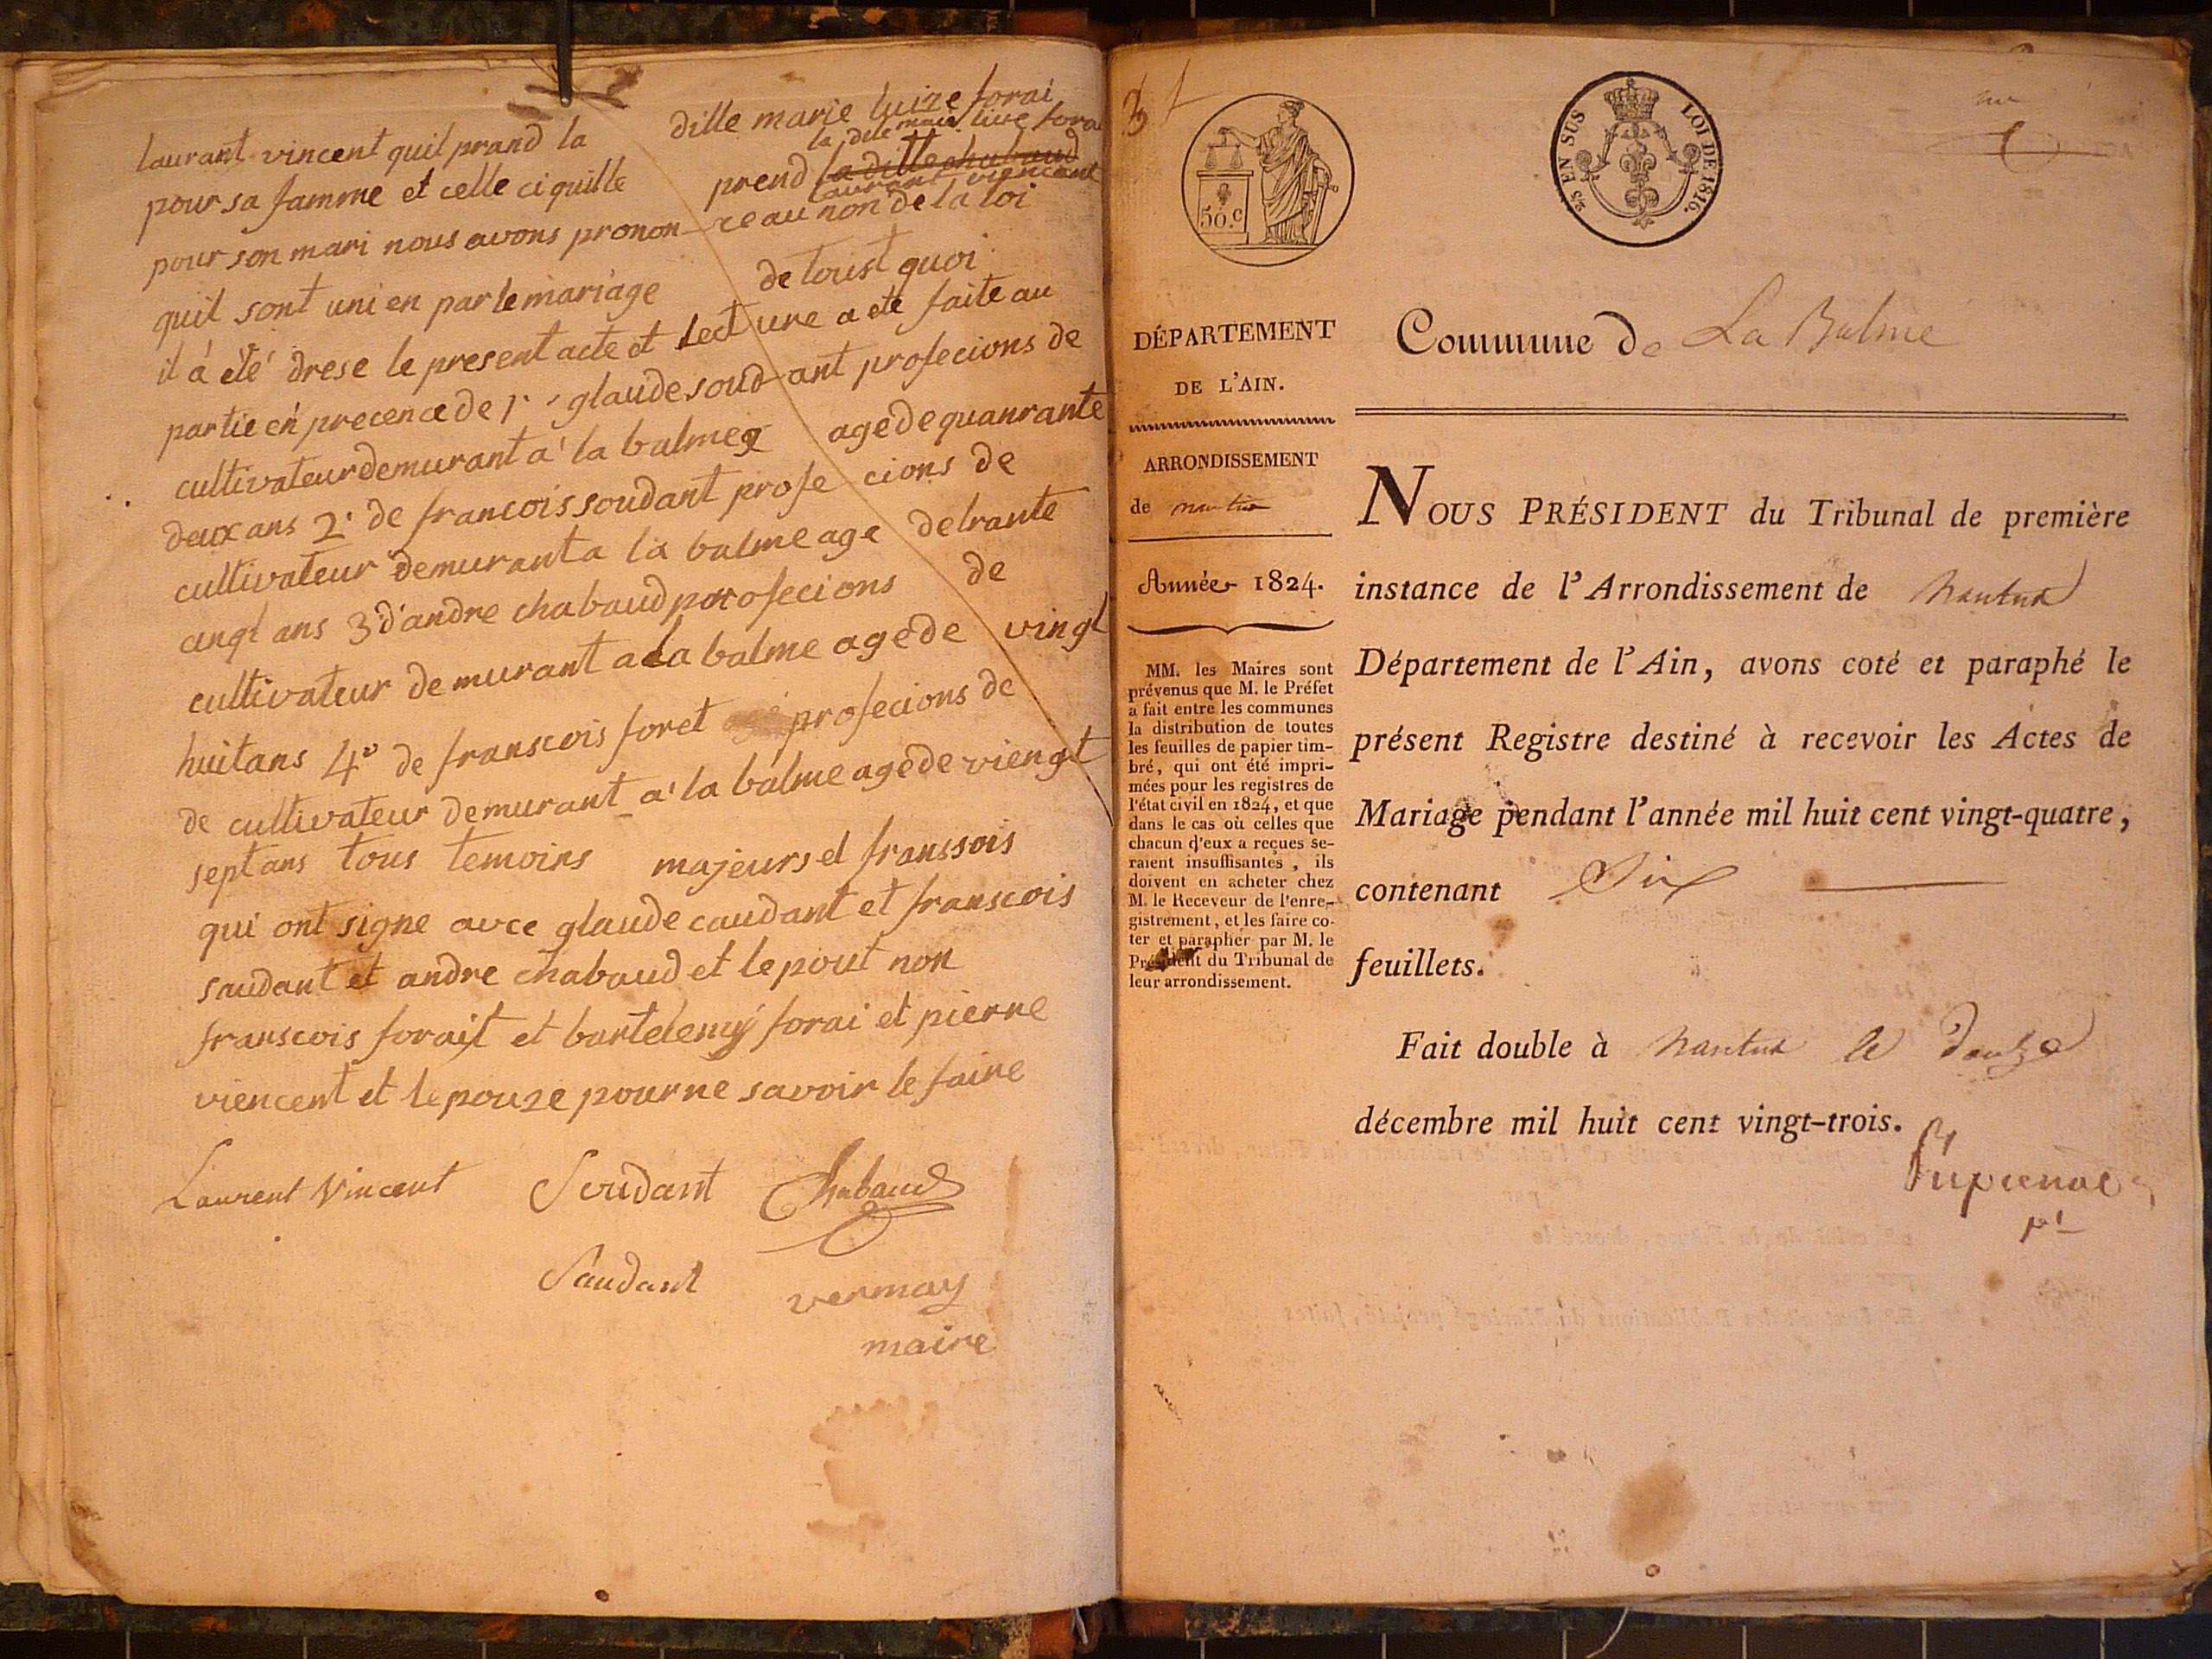 laurant vincent quil prand la dille marie luize forai
pour sa famme et celle ci quille prend la dille chabaud
la dile marie luve forai
laurant viencent
pour son mari nous avons pronon ce au non de la loi
quil sont uni en par le mariage de toust quoi
il à été drese le present acte et lecture a eté faite au
partie en precence de 1° glaude soudant profecions de
cultivateur demurant a la balme agé de quanrante
deux ans 2° de francois soudant profe cions de
cultivateur demurant a la balme age de trante
cinqt ans 3 d'andre chabaud profecions de
cultivateur demurant a la balme agé de vingt
huit ans 4° de franscois foret profecions de
de cultivateur demurant a la balme agé de viengt
sept ans tous temoins majeurs et franssois
qui ont signe avce glaude caudant et franscois
saudant et andre chabaud et lepout non
franscois forait et bartelemy forai et pierre
viencent et lepouze pour ne savoir le faire
Laurent Vincent Soudant Chabaud
Saudant vermay
maire
50.c
25 EN SUS LOI DE 1816.
DÉPARTEMENT
DE L'AIN.
ARRONDISSEMENT
de nantua
Année 1824.
MM. les Maires sont
prévenus que M. le Préfet
a fait entre les communes
la distribution de toutes
les feuilles de papier tim-
bré, qui ont été impri-
mées pour les registres de
l'état civil en 1824, et que
dans le cas où celles que
chacun d'eux a reçues se-
raient insuffisantes, ils
doivent en acheter chez
M. le Receveur de l'enre-
gistrement, et les faire co-
ter et parapher par M. le
Président du Tribunal de
leur arrondissement.
Commune de La Balme
NOUS PRÉSIDENT du Tribunal de première
instance de l'Arrondissement de Nantua
Département de l'Ain, avons coté et paraphé le
présent Registre destiné à recevoir les Actes de
Mariage pendant l'année mil huit cent vingt-quatre,
contenant Six
feuillets.
Fait double à Nantua le douze
décembre mil huit cent vingt-trois.